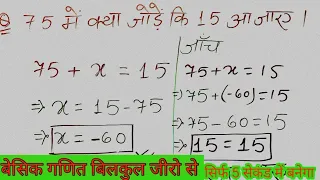 Q 75 में क्या जोड़ें कि 15 आ जाए।
75 + x = 15
⇒ x = 15 - 75
⇒ x = -60
जाँच
75 + x = 15
⇒ 75 + (-60) = 15
⇒ 75 - 60 = 15
15 = 15
बेसिक गणित बिलकुल जीरो से
सिर्फ 5 सेकंड में बनेगा